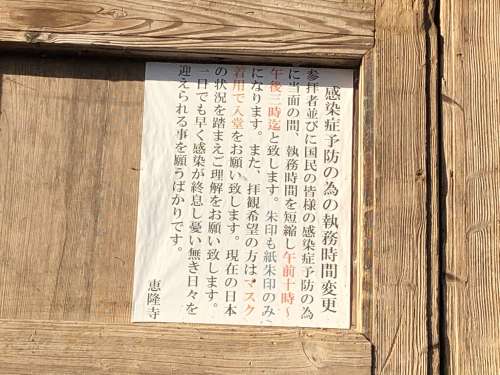 感染症予防の為の執務時間変更
参拝者並びに国民の皆様の感染症予防の為
に当面の間、執務時間を短縮し午前十時〜
午後三時迄と致します。朱印も紙朱印のみ
になります。また、拝観希望の方はマスク
着用で入堂をお願い致します。現在の日本
の状況を踏まえご理解をお願い致します。
一日でも早く感染が終息し憂い無き日々を
迎えられる事を願うばかりです。
恵隆寺